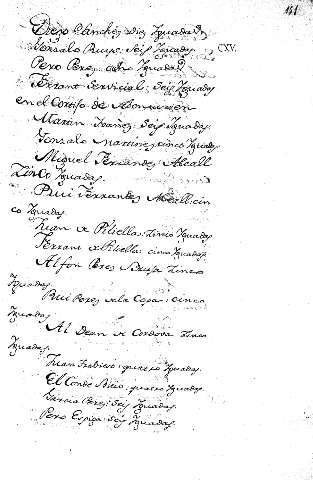 151
Diego Sanchez diez Yguadas
Gonzalo Ruys: Seis Yguadas
CXV.
Pero Perez, ocho Yguadas
Ferrant Servicial: Seis Yguadas
en el Cortijo de
Martin Ivañez: Seis Yguadas.
Gonzalo Martinez, cinco Yguadas
Miguel Fernandez Alcall
Zinco Yguadas.
Rui Fernandez Alcall. cin
co Yguadas.
Juan de Zinco Yguadas
Ferrant de cinco Yguadas.
Alfon Perez Zinco
Yguadas.
Rui Perez de la Copa: cinco
Yguadas.
Al Dean de Cordova Zinco
Yguadas.
Juan quatro Yguadas.
El Conde quatro Yguadas.
Garcia Perez: Seis Yguadas.
Pero Espiga: Seis Yguadas.